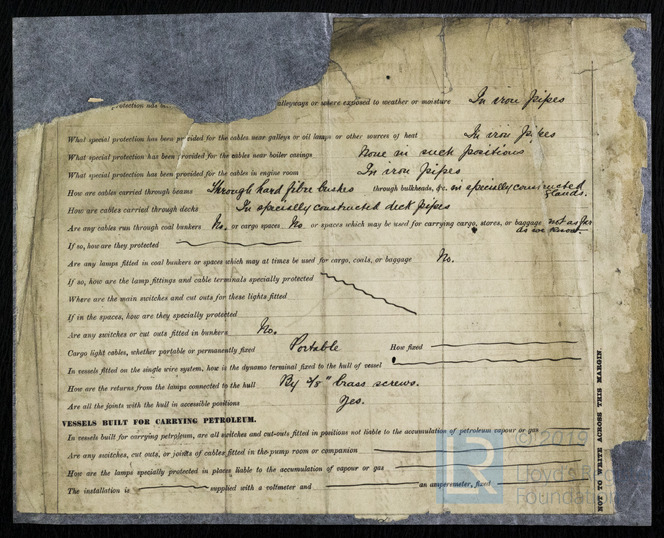 alleyways or where exposed to weather or moisture In iron pipes
What special protection has been provided for the cables near galleys or oil lamps or other sources of heat In iron pipes
What special protection has been provided for the cables near boiler casings None in such positions
What special protection has been provided for the cables in engine room In iron pipes
How are cables carried through beams Through hard fibre bushes through bulkheads, &c. in specially constructed glands.
How are cables carried through decks In specially constructed deck pipes
Are any cables run through coal bunkers No. or cargo spaces No. or spaces which may be used for carrying cargo, stores, or baggage not as far as we know.
If so, how are they protected
Are any lamps fitted in coal bunkers or spaces which may at times be used for cargo, coals, or baggage No.
If so, how are the lamp fittings and cable terminals specially protected
Where are the main switches and cut outs for these lights fitted
If in the spaces, how are they specially protected
Are any switches or cut outs fitted in bunkers No.
Cargo light cables, whether portable or permanently fixed Portable How fixed
In vessels fitted on the single wire system, how is the dynamo terminal fixed to the hull of vessel
How are the returns from the lamps connected to the hull By 3/8" brass screws.
Are all the joints with the hull in accessible positions Yes.
VESSELS BUILT FOR CARRYING PETROLEUM.
In vessels built for carrying petroleum, are all switches and cut-outs fitted in positions not liable to the accumulation of petroleum vapour or gas
Are any switches, cut outs, or joints of cables fitted in the pump room or companion
How are the lamps specially protected in places liable to the accumulation of vapour or gas
The installation is supplied with a voltmeter and an amperemeter, fixed
NOT TO WRITE ACROSS THIS MARGIN
© 2019
Lloyd's Reg
Foundation